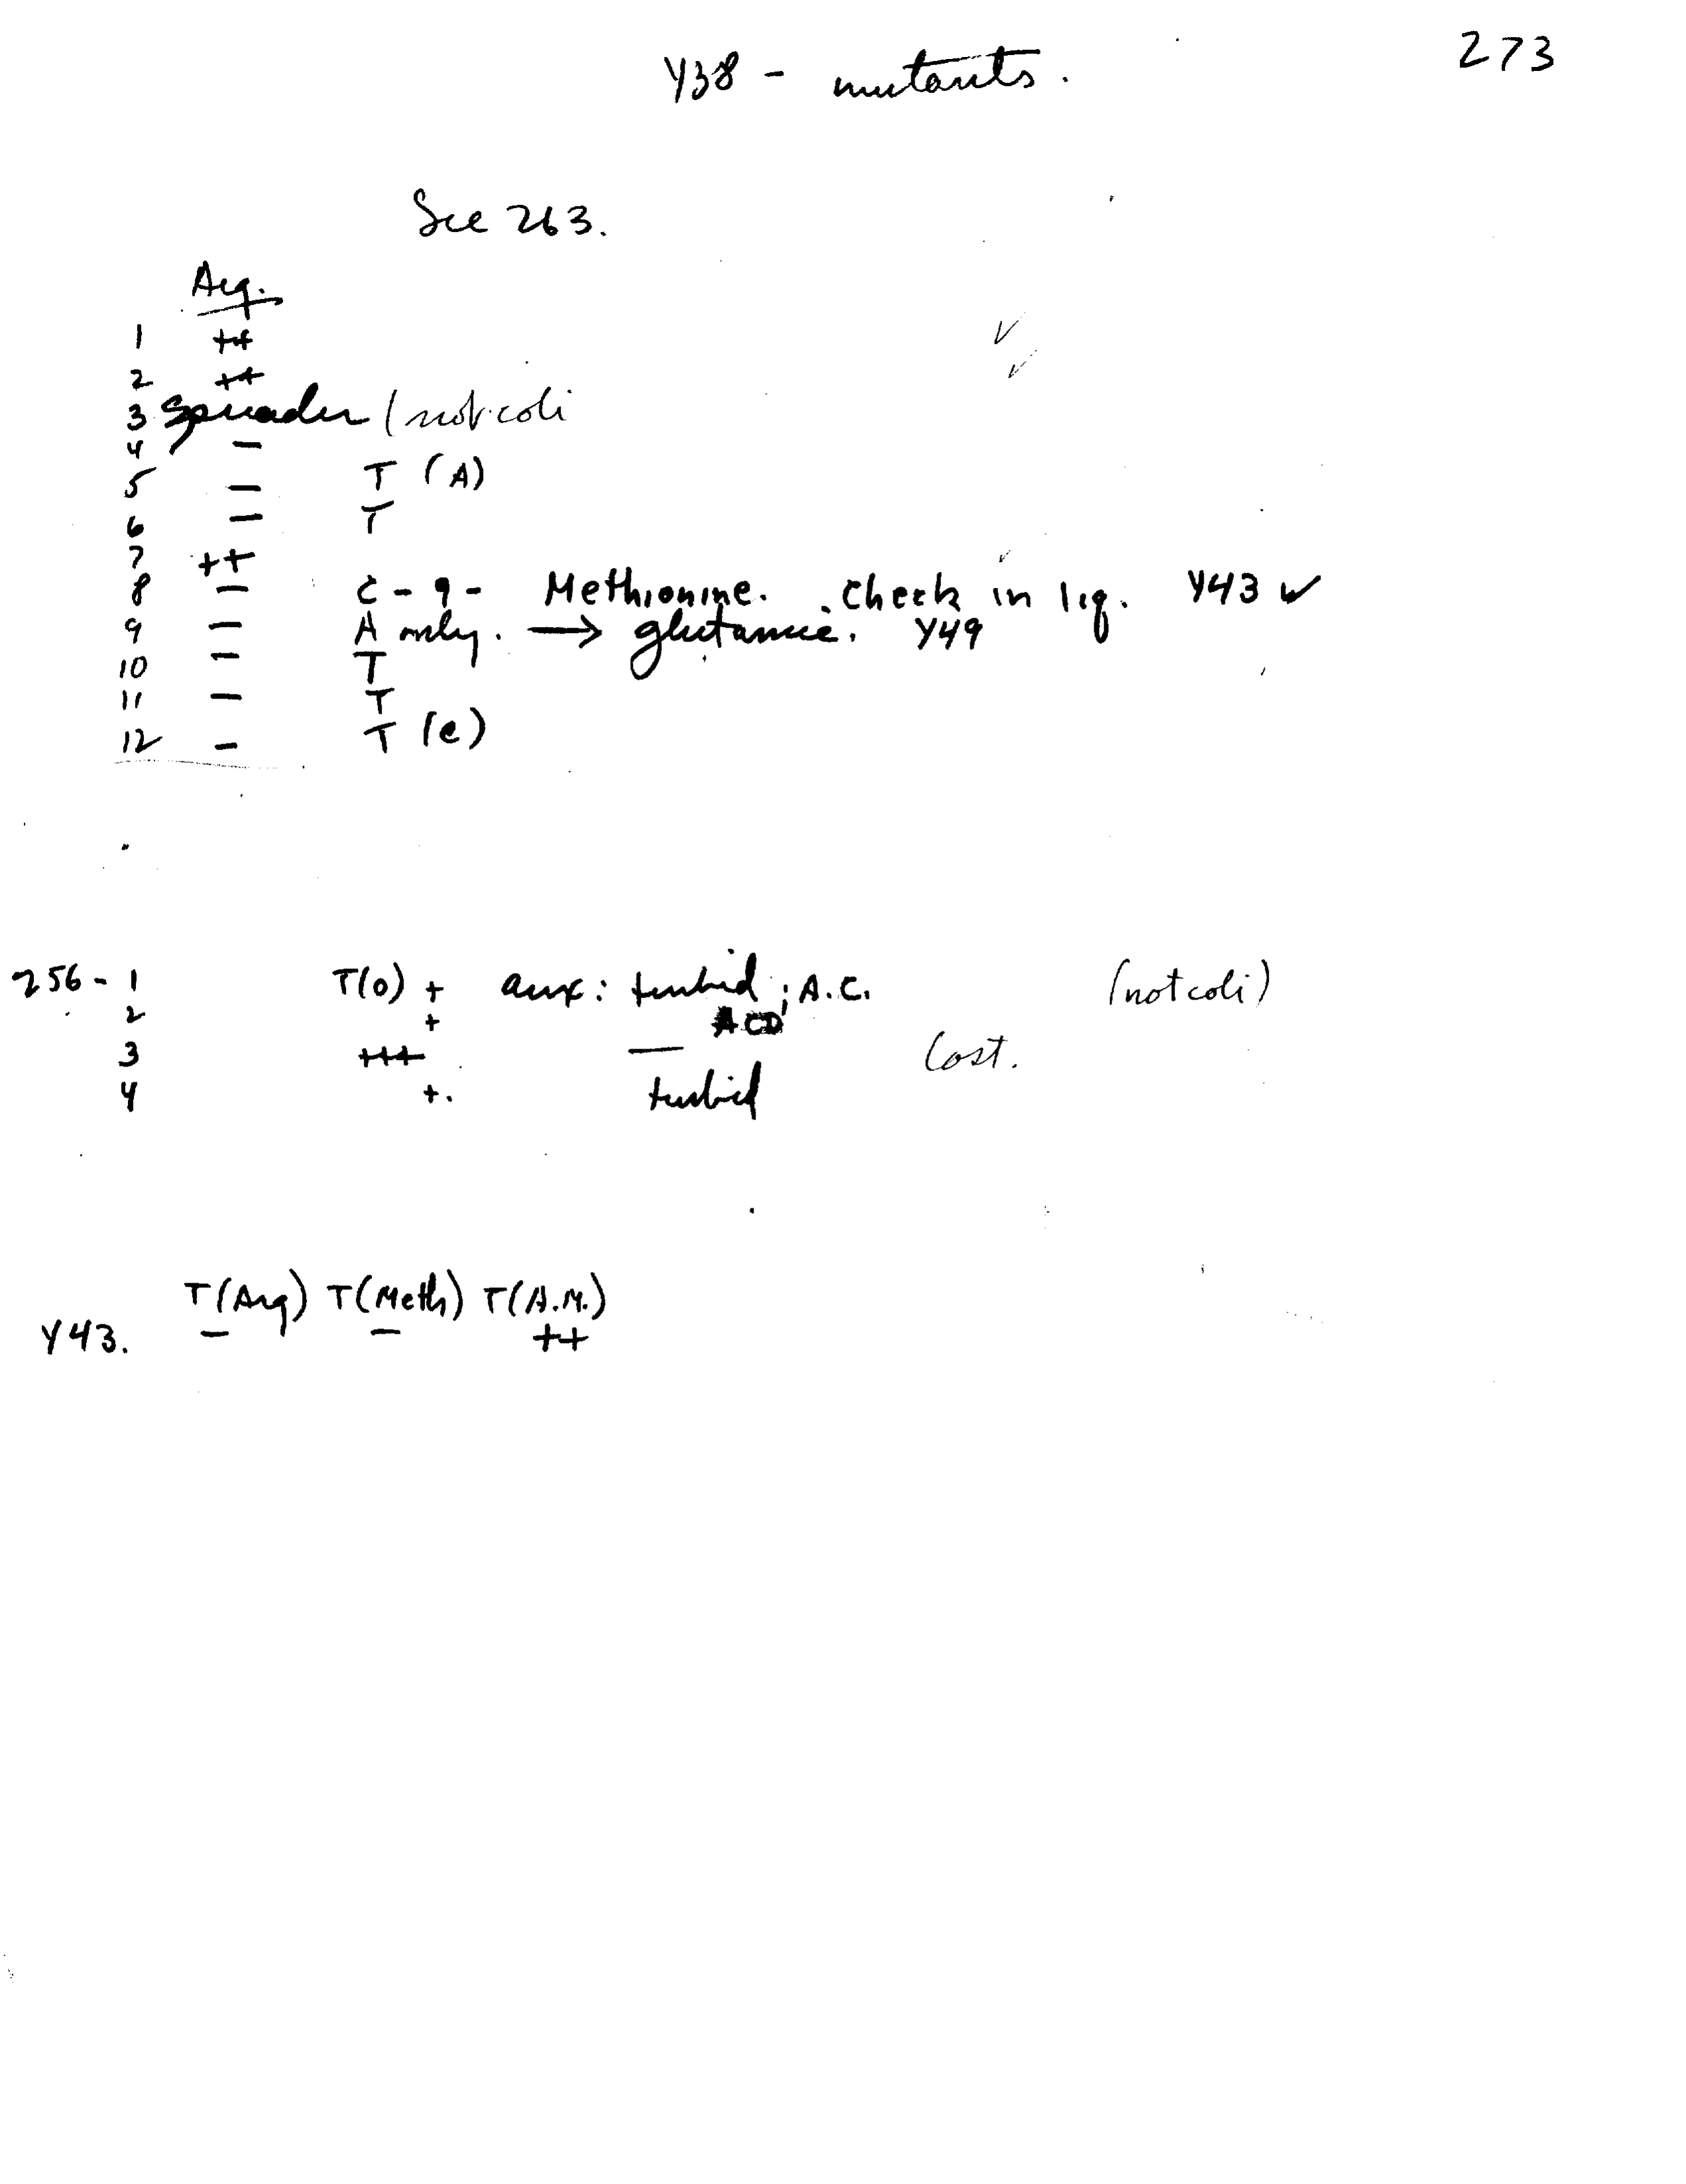 273
Y38 - mutants.
See 263.
Arg.
1 ++ ✓
2 ++ ✓
3 Spreader (not coli
4 -
5 - T (A)
6 - T
7 ++ ✓
8 - C - 9 - Methionine. Check in liq. Y43 ✓
9 - A only. → glutamic. Y49
10 - T
11 - T
12 - T (C)
256 - 1 T(0) + aux: turbid; A.C. (not coli)
2 + ACD
3 +++ — Lost.
4 +. turbid
T(Arg) T(Meth) T(A.M.)
Y43. - - ++